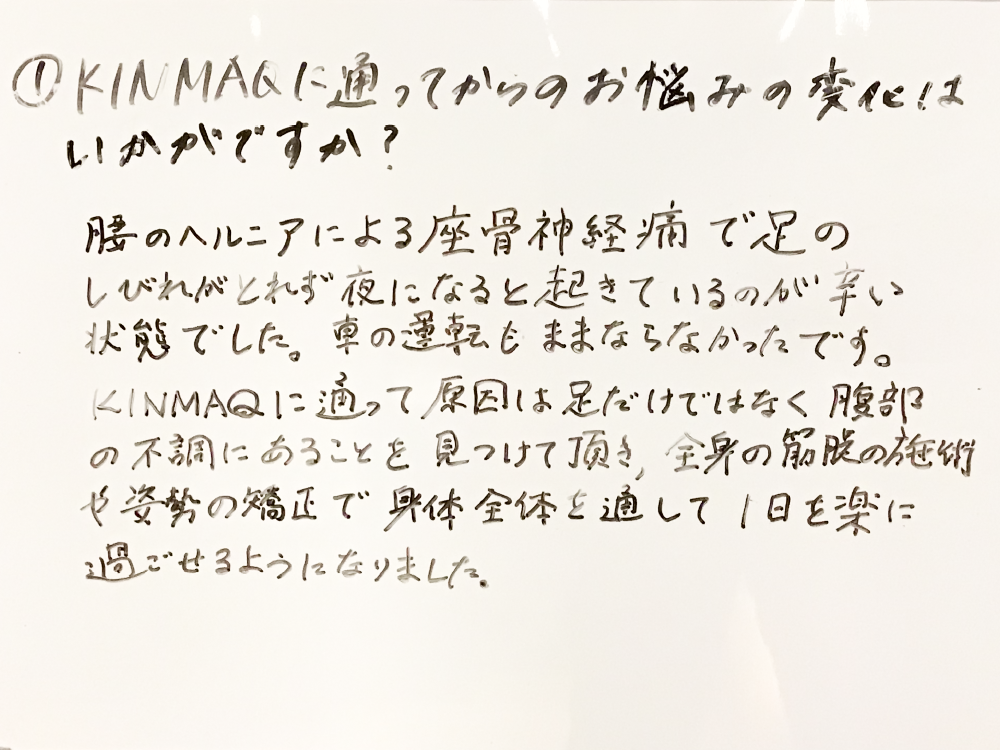 ①KINMAQに通ってからのお悩みの変化は
いかがですか?
腰のヘルニアによる座骨神経痛で足の
しびれがとれず夜になると起きているのが辛い
状態でした。車の運転もままならなかったです。
KINMAQに通って原因は足だけではなく腹部
の不調にあることを見つけて頂き,全身の筋膜の施術
や姿勢の矯正で身体全体を通して1日を楽に
過ごせるようになりました。